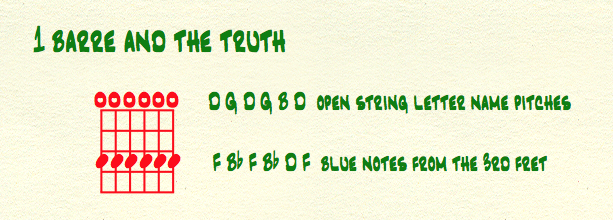 1 BARRE AND THE TRUTH
D G D G B D OPEN STRING LETTER NAME PITCHES
F B♭ F B♭ D F BLUE NOTES FROM THE 3RD FRET